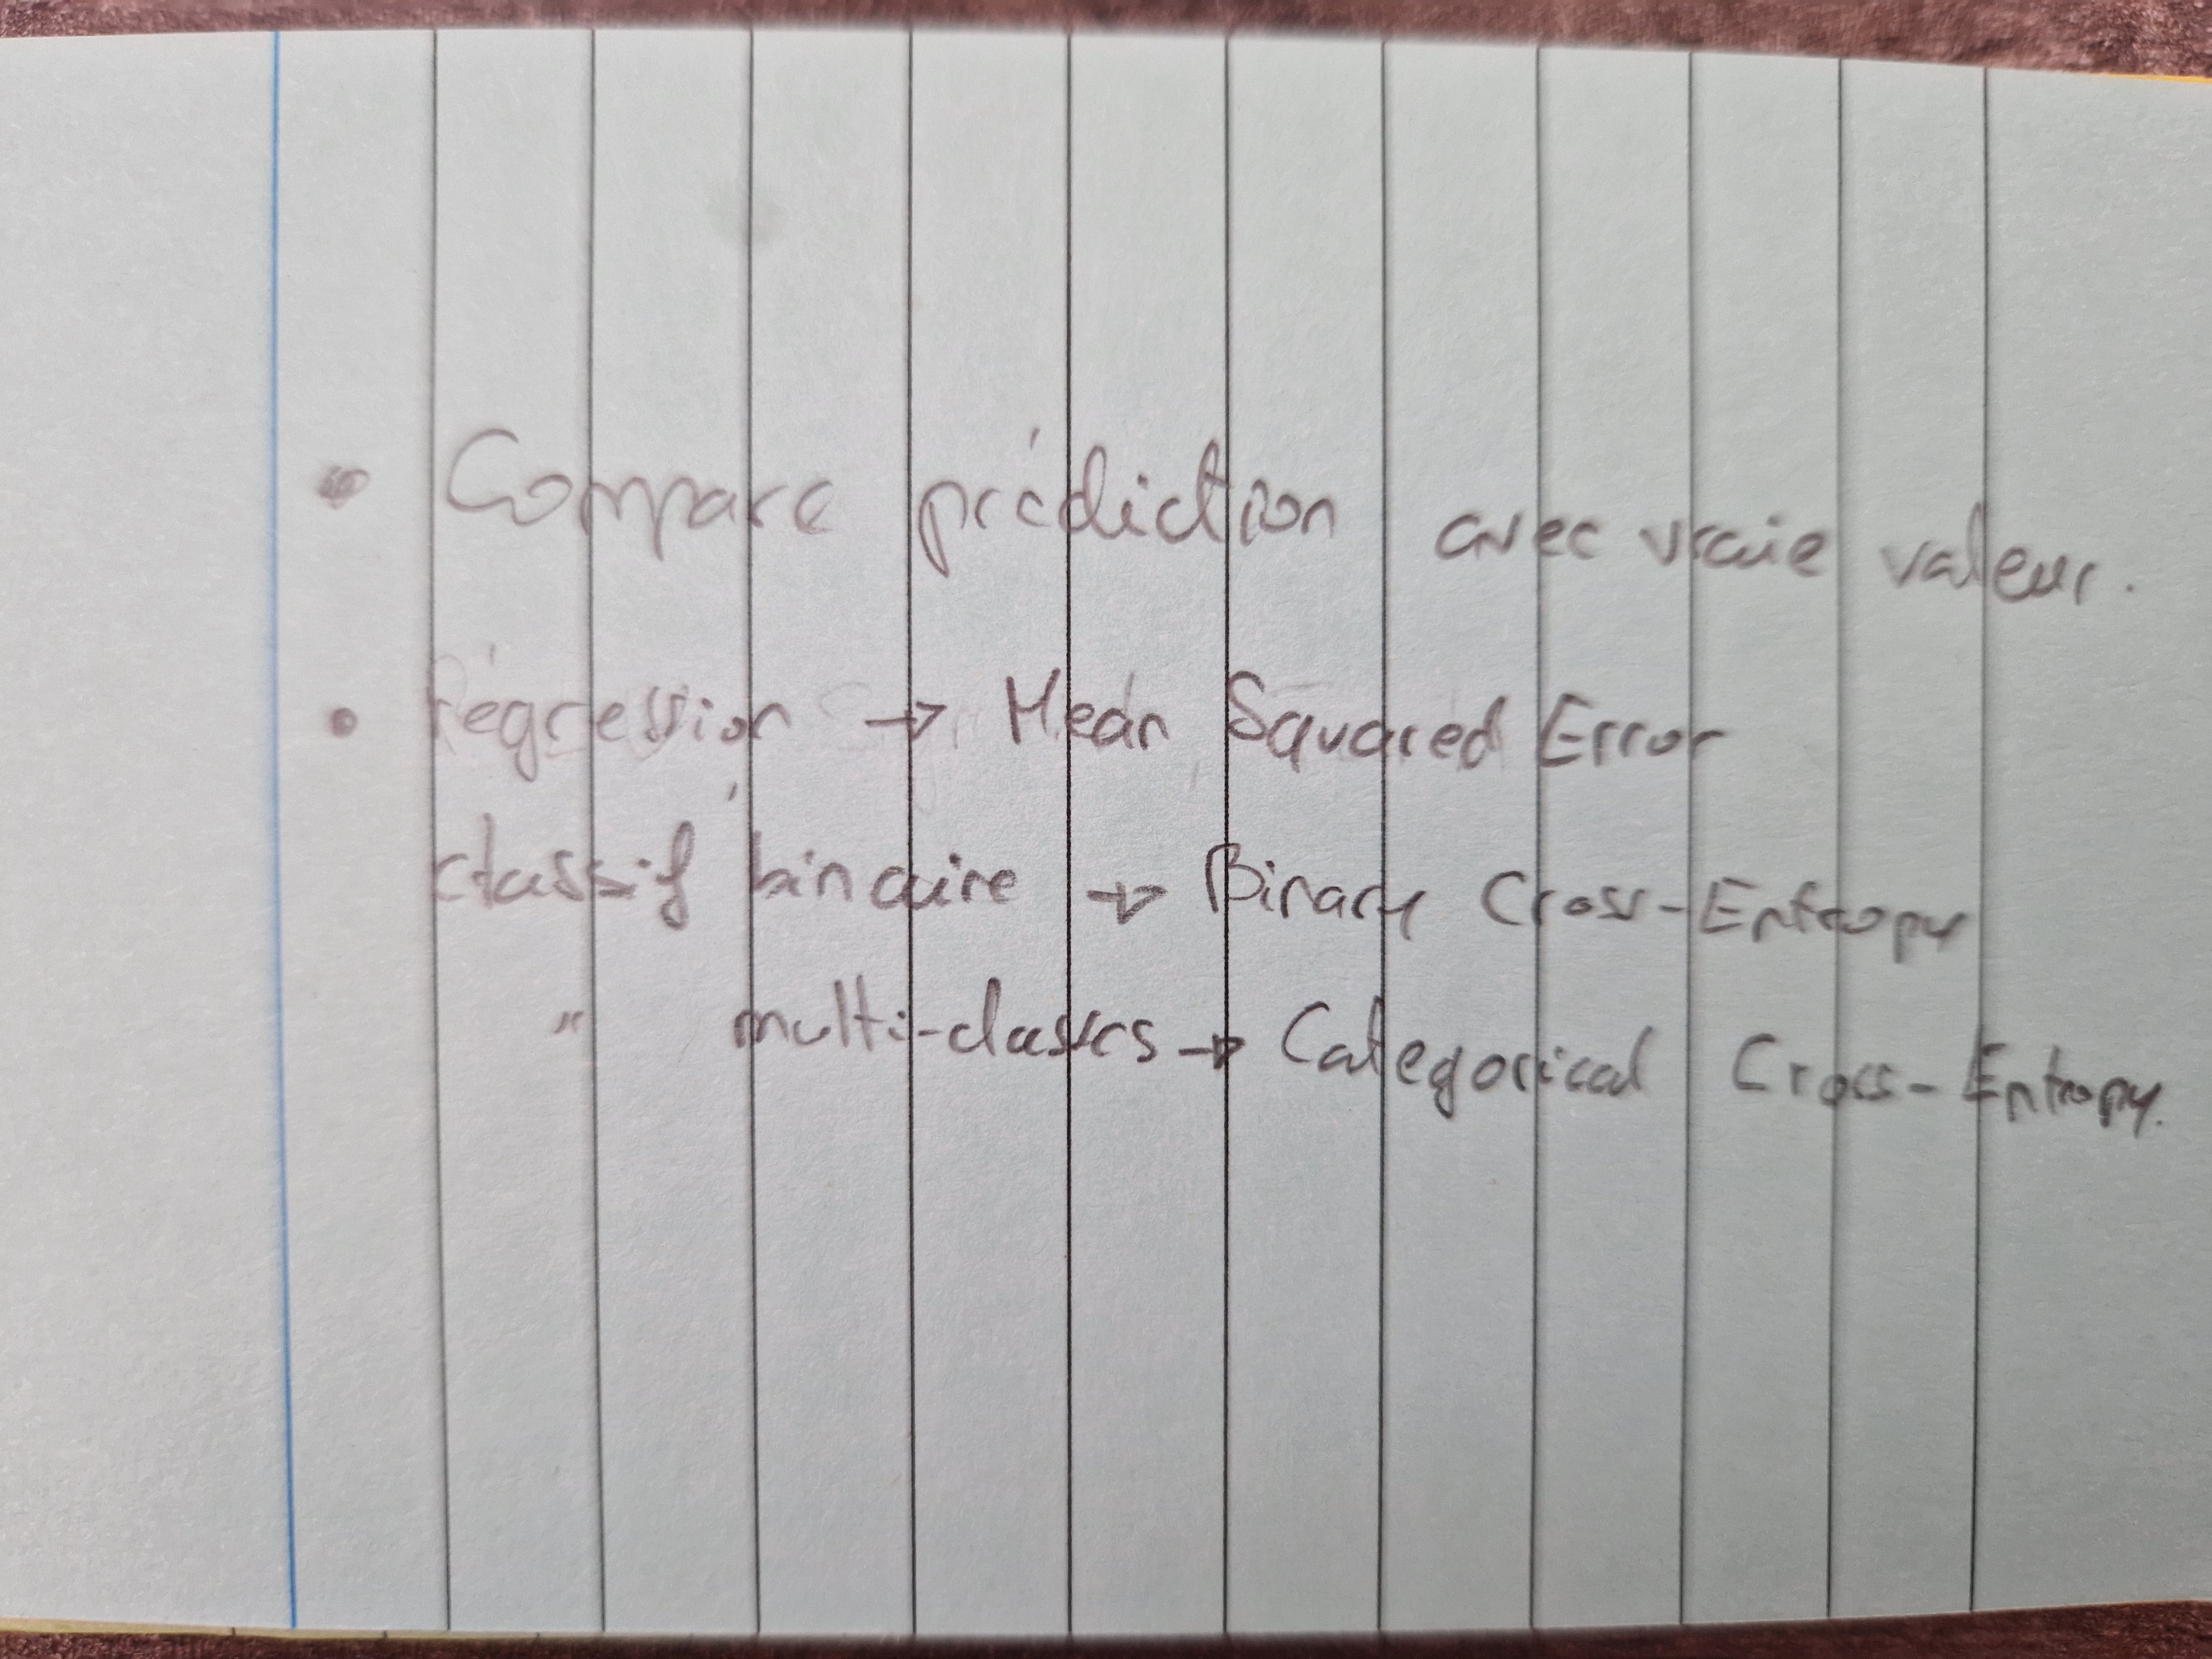 • Compare prédiction avec vraie valeur.
• Régression → Mean Squared Error
classif binaire → Binary Cross-Entropy
" multi-classes → Categorical Cross-Entropy.